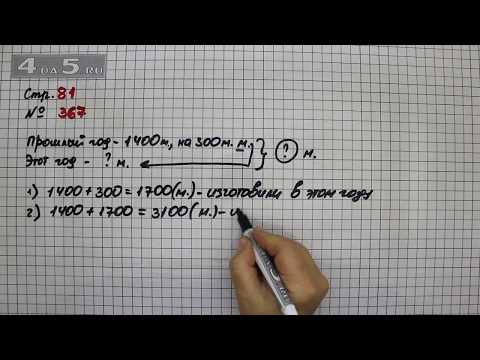 4 DA 5 RU
Стр. 81
№ 367
Прошлый год - 1400 м, на 300 м. м.
Этот год - ? м.
? м.
1) 1400 + 300 = 1700 (м.) - изготовили в этом году
2) 1400 + 1700 = 3100 (м.) - и